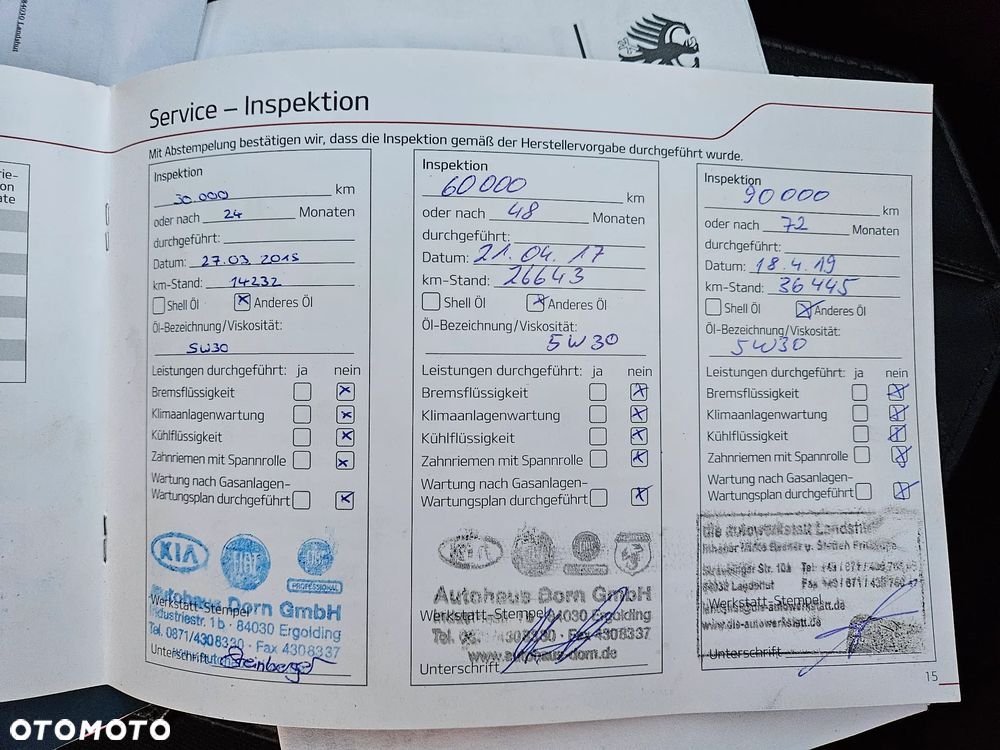 Service – Inspektion
Mit Abstempelung bestätigen wir, dass die Inspektion gemäß der Herstellervorgabe durchgeführt wurde.
rie-
on
ate
Inspektion
30.000 km
oder nach 24 Monaten
durchgeführt:
Datum: 27.03.2015
km-Stand: 14232
Shell Öl Anderes Öl
Öl-Bezeichnung/Viskosität:
5W30
Leistungen durchgeführt: ja nein
Bremsflüssigkeit
Klimaanlagenwartung
Kühlflüssigkeit
Zahnriemen mit Spannrolle
Wartung nach Gasanlagen-
Wartungsplan durchgeführt
KIA FIAT
PROFESSIONAL
Autohaus Dorn GmbH
Werkstatt-Stempel
Industriestr. 1b · 84030 Ergolding
Tel. 0871/4308330 · Fax 4308337
Unterschrift
Inspektion
60000 km
oder nach 48 Monaten
durchgeführt:
Datum: 21.04.17
km-Stand: 26643
Shell Öl Anderes Öl
Öl-Bezeichnung/Viskosität:
5W30
Leistungen durchgeführt: ja nein
Bremsflüssigkeit
Klimaanlagenwartung
Kühlflüssigkeit
Zahnriemen mit Spannrolle
Wartung nach Gasanlagen-
Wartungsplan durchgeführt
KIA
Autohaus Dorn GmbH
Werkstatt-Stempel 84030 Ergolding
Tel. 4308330 · Fax 4308337
www.autohaus-dorn.de
Unterschrift
Inspektion
90000 km
oder nach 72 Monaten
durchgeführt:
Datum: 18.4.19
km-Stand: 36445
Shell Öl Anderes Öl
Öl-Bezeichnung/Viskosität:
5W30
Leistungen durchgeführt: ja nein
Bremsflüssigkeit
Klimaanlagenwartung
Kühlflüssigkeit
Zahnriemen mit Spannrolle
Wartung nach Gasanlagen-
Wartungsplan durchgeführt
die autowerkstatt
Inhaber
Str. 10a Tel:
Landshut Fax
Werkstatt-Stempel
www.die-autowerkstatt.de
Unterschrift
15
OTOMOTO